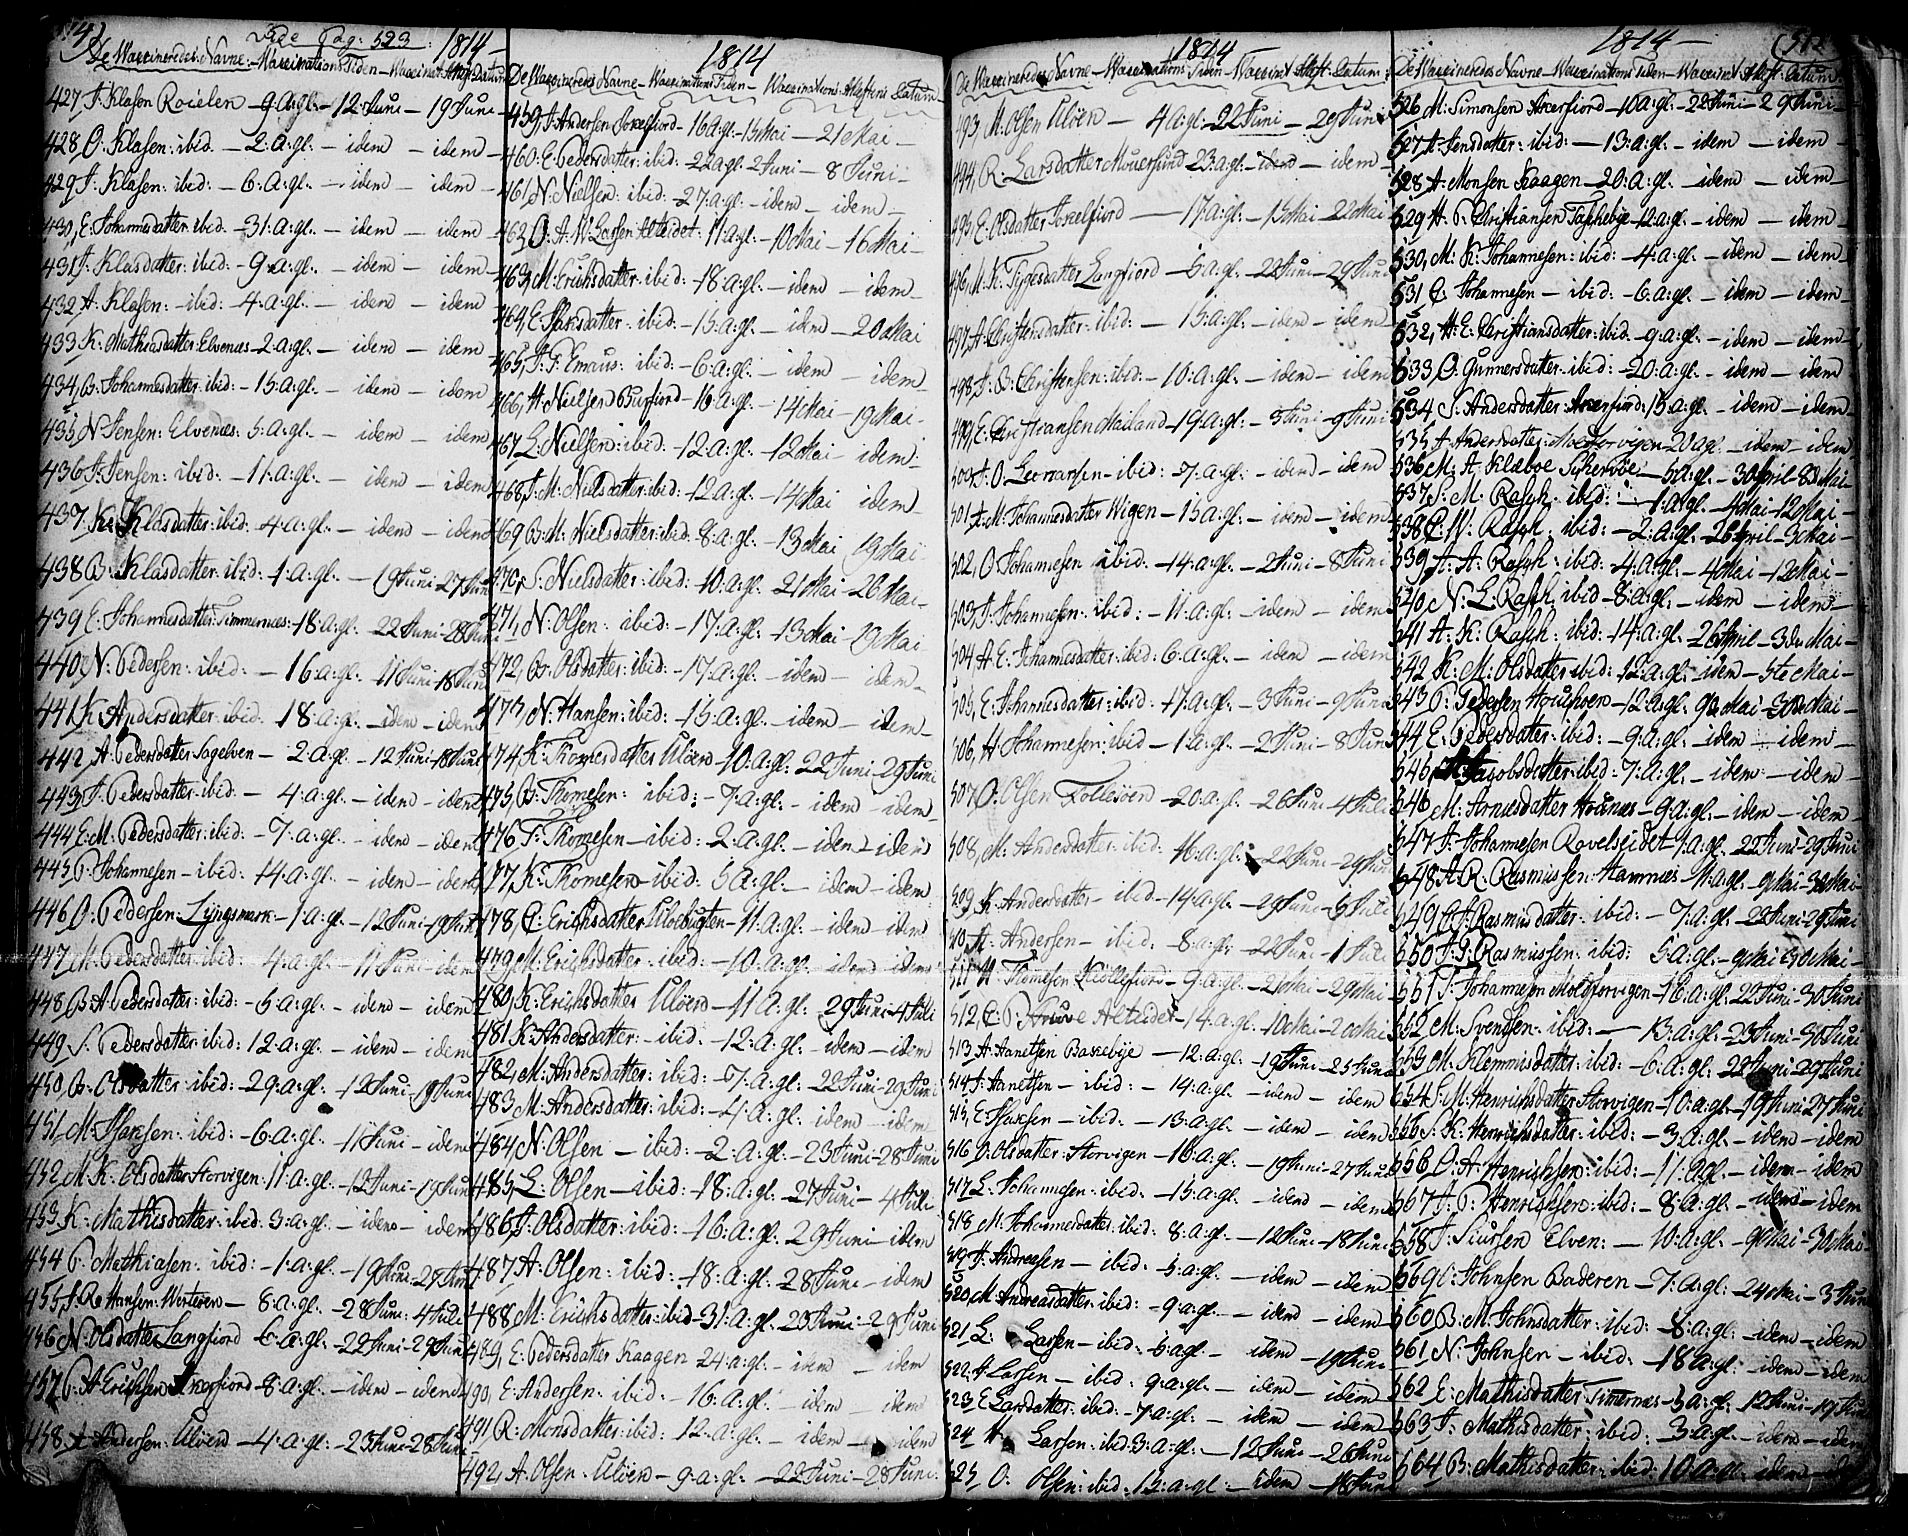 Vide Pag: 523. 1814
De Waccineredes Navne - Waccinations Tiden - Waccinat: Attest: Datum
427 J: Klasen Roielen - 9 a: gl: - 12 Juni - 19 Juni
428 O. Klasen: ibid. - 2: a: gl. - idem - idem
429 J: Klasen: ibid: - 6: a: gl. - idem - idem
430, E. Johannesdatter ibid. - 31: a: gl. - idem - idem
431 J: Klasdatter: ibid: - 9 a: gl. - idem - idem
432 A. Klasen: - ibid: - 4: a: gl. - idem - idem
433 K: Mathiasdatter Elvenæs - 2: a: gl: - idem - idem
434, B. Johannesdatter: ibid: - 15: a: gl. - idem - idem
435 N Jensen: Elvenæs: 5: a: gl. - idem - idem
436 J: Jensen: ibid: - 11: a: gl. - idem - idem
437 K: Klasdatter: ibid: 4: a: gl. - idem - idem
438 B: Klasdatter: ibid: 1: a: gl. - 19 Juni - 27 Juni
439 E. Johannesdatter: Timmernæs: 18: a: gl. - 22 Juni - 28 Juni
440 N: Pedersen: ibid: - 16: a: gl. - 11 Juni - 18 Juni
441 K Andersdatter: ibid: 18: a: gl. - idem - idem
442 A Pedersdatter Sagelven - 2: a: gl. - 12 Juni - 18 Juni
443 J: Pedersdatter: ibid: - 4: a: gl. - idem - idem
444 E. M. Pedersdatter: ibid: - 7: a: gl. - idem - idem
445 P: Johannesen - ibid: 14: a: gl. - idem - idem
446 O: Pedersen: Lyngsmark - 1: a: gl. - 12 Juni - 19 Juni
447 M. Pedersdatter: ibid: 4: a: gl. - 11 Juni - idem
448 B: A: Pedersdatter: ibid: - 5: a: gl. - idem - idem
449 S: Pedersdatter: ibid: 12: a: gl. - idem - idem
450, B: Olsdatter: ibid: 29: a: gl. - 12 Juni - 19 Juni
451 M. Hansen: ibid: - 6: a: gl. - 11 Juni - idem
452 M. K: Olsdatter Storvigen: 11: a: gl. - 12 Juni - 19 Juni
453 K: Mathisdatter: ibid: 3: a: gl. - idem - idem
454 P: Mathiasen: ibid: - 1: a: gl. - 19 Juni - 27 Juni
455 Hansen: - 8: a: gl. - 28 Juni - 4 Juli
456 N. Olsdatter Langfiord - 6: a: gl. - 22 Juni - 29 Juni
457 P: A Erichsen - 8: a: gl. - idem - idem
458 A Andersen: Uløen - 4: a: gl. - 23 Juni - 28 Juni
1814
De Waccineredes Navne - Waccinations Tiden - Waccinations Attestens Datum
459, J. Andersen - 16 a: gl - 15 Mai - 21 Mai -
460: E. Pedersdatter: ibid: - 22 a: gl - 2 Juni - 8 Juni -
461, N. Nielsen: ibid: - 27: a: gl. - idem - idem
462 O: A. W. Larsen Alteidet: 11: a: gl. - 10 Mai - 16 Mai -
463, M: Erichsdatter: ibid: - 18: a: gl. - idem - idem
464, E. Hansdatter: ibid: - 15: a: gl. - idem - 20 Mai
465, J: F: Emaus: ibid: - 6: a: gl. - idem - idem
466, H. Nielsen Burfiord - 16 a: gl. - 14 Mai - 19 Mai -
467 L: Nielsen: ibid: - 12: a: gl. - 12 Mai - idem
468, J: M: Nielsdatter: ibid: - 12 a: gl. - 14 Mai idem
469 B: M: Nielsdatter ibid: - 8: a: gl. - 13 Mai 19 Mai
470, S. Nielsdatter: ibid: - 10. a: gl. - 21 Mai - 26 Mai -
471, N. Olsen: ibid: - 17: a: gl. - 13 Mai - 19 Mai
472, B. Olsdatter: ibid: - 17: a: gl. - idem - idem
473, N. Hansen: ibid: - 15: a: gl. - idem - idem
474, K: Thomesdatter Uløen - 10: a: gl: 22 Juni - 29 Juni
475, B. Thomesen: ibid: - 7: a: gl: - idem - idem
476 J: Thomesen - ibid: - 2: a: gl. - idem - idem
477 K: Thomesen - ibid: 5 a: gl. - idem - idem
478, C: Erichsdatter Uløebugten - 11: a: gl. - idem - idem
479, M. Erichsdatter: ibid: - 10: a: gl. idem - idem
480, K: Erichsdatter Uløen - 11 a: gl. 29 Juni - 4 Juli
481 K Andersdatter: ibid: - 12: a: gl: idem - idem
482, M: Andersdatter: ibid: - 7: a: gl. - 22 Juni - 29 Juni
483 M: Andersdatter: ibid: - 4: a: gl. idem - idem
484 N: Olsen - ibid: - 2: a: gl. - 23 Juni - 28 Juni
485, L: Olsen - ibid: - 18: a: gl. - 27 Juni - 4 Juli
486 J: Olsdatter: ibid: - 16: a: gl. 29 Juni - idem
487 A: Olsen: ibid: - 18: a: gl. 28 Juni - idem
488 M: Erichsdatter: ibid - 31: a: gl. 23 Juni - 29 Juni
489, E: Pedersdatter Kaagen 24: a: gl. - idem - idem
490, E: Andersen: ibid: - 16: a: gl. - idem - idem
491 R: Monsdatter: ibid: - 12: a: gl. - idem - idem
492, A. Olsen: Uløen - 9: a: gl. - 22 Juni - 28 Juni:
1814
De Waccineredes Navne - Waccinations Tiden - Waccinat: Attest: Datum:
493, M. Olsen Uløen - 4 a: gl: - 22 Juni - 29 Juni
494, R: Larsdatter 23: a: gl. - idem - idem
495, E. Olsdatter - 17: a: gl. - 15 Mai - 22 Mai
496, M. K: Langfiord - 5 a: gl: - 22 Juni - 29 Juni
497 A: Christensdatter: ibid: - 15: a: gl. - idem - idem
498 J: O: Christensen: ibid: - 10: a: gl. - idem - idem
499 E: Christiansen Mailand - 19: a: gl. - 3 Juni - 9 Juni
500 J: O. - ibid: - 7: a: gl. - idem - idem
501 M: Johannesdatter Wigen - 15 a: gl. - idem - idem
502, O. Johannesen ibid: - 14: a: gl. - 2 Juni - 8 Juni
503 J: Johannesen: ibid: - 11: a: gl. - idem - idem
504 A: E. Johannesdatter: ibid: 6: a: gl. - idem - idem
505, E. Johannesdatter: ibid: 17: a: gl. - 3 Juni - 9 Juni
506, H Johannesen: ibid - 1: a: gl. - 2 Juni - 8 Juni
507 O. Olsen Follesøen - 20: a: gl. - 26 Juni - 4 Juli
508, M: Andersdatter: ibid: 16: a: gl. - 22 Juni - 29 Juni
509 K: Andersdatter - ibid: - 14: a: gl. - 29 Juni - 5 Juli
510 A: Andersen - ibid: - 8: a: gl. - 22 Juni - 1 Juli
511 H Thomesen - 9: a: gl. - 21 Mai - 29 Mai
512, C: P: Alteidet - 14: a: gl. - 10 Mai - 20 Mai
513 A: Aanetsen - 12: a: gl. - 19 Juni - 25 Juni
514 J: Aanetsen - ibid: - 14: a: gl. - idem - idem
515, E Hansen - ibid: - 13: a: gl. - idem - idem
516 O. Olsdatter Storvigen - 16: a: gl. - 19 Juni - 27 Juni
517 L: Johannesen: ibid: - 15: a: gl. - idem - idem
518 M: Johannesdatter: ibid: 8: a: gl. - 12 Juni - 18 Juni
519 J: Andreasen - ibid: - 5: a: gl. - idem - idem
520, M. Andreasdatter: ibid: - 9: a: gl. - idem - idem
521 L: Larsen - ibid: - 6: a: gl. - idem - 19 Juni
522, H Larsen - ibid: 9: a: gl. - idem - idem
523 E Larsdatter: ibid: - 7: a: gl. - idem - idem
524 H Larsen: ibid: 3: a: gl. - 12 Juni - 26 Juni
525 O. Olsen: ibid: 12: a: gl. - idem - 18 Juni
1814 -
De Waccineredes Navne - Waccinations Tiden - Waccinat: Attest: Datum
526 M: Simonsen - 10 a: gl. - 22 Juni - 29 Juni -
527 A: Jensdatter: ibid: - 13: a: gl. - idem - idem
528 A: Monsen Kaagen - 20: a: gl. - idem - idem
529 H. P: Christiansen Taskebye - 12: a: gl. - idem - idem
530, M: K: Johannesen: ibid: - 4: a: gl. - idem - idem
531 C. Johannesen - ibid: - 6: a: gl. - idem - idem
532, H: E: Christiansdatter: ibid - 9: a: gl. - idem - idem
533 O: Gunnersdatter: ibid: - 20: a: gl. - idem - idem
534 S: Andersdatter: 15 a: gl. - idem - idem
535 A Andersdatter: Molforvigen - 20 a gl - idem - idem
536 M: A. Klæboe Schervøe - 5 a: gl. - 30 April - 8 Mai -
537 S: M. Rasch: ibid: - 1: a: gl - 4 Mai - 12 Mai -
538 C: W. Rasch: ibid: - 2: a: gl. - 26 April - 3 Mai -
539 A: A: Rasch: ibid: 4: a: gl. - 4 Mai - 12 Mai -
540 N: L: Rasch: ibid - 8: a: gl. - idem - idem -
541 A: K: Rasch: ibid: 14: a: gl. 26 April - 3de Mai -
542 K: M: Olsdatter ibid: 12 a: gl. - idem - 5te Mai -
543 P: Pedersen - 12: a: gl. 9de Mai - 30 Mai -
544 E: Pedersdatter: ibid: - 9: a: gl. - idem - idem
545, Jacobsdatter: ibid: 7: a: gl. - idem - idem -
546 M: Arnesdatter - 9: a: gl. - idem - idem
547 J: Johannesen Ravelseidet 1: a: gl. 22 Juni - 29 Juni
548 A: R: Rasmussen: Hamnæs - 11: a: gl. - 9 Mai - 30 Mai -
549 Rasmusdatter: ibid: - 7: a: gl. - 22 Juni - 29 Juni
550 J: J: Rasmussen: ibid: 5: a: gl. - 9 Mai - 30 Mai -
551 J: Johannesen Molforvigen - 16: a: gl. 22 Juni - 30 Juni
552 M: Svendsen: ibid: - 13: a: gl. - 23 Juni - 30 Juni
553 M: Klemmisdatter: ibid: - 6: a: gl. - 22 Juni - 29 Juni
554 S: M: Henrichsdatter Storvigen - 10: a: gl. - 19 Juni 27 Juni
555 S: K: Henrichsdatter: ibid: - 3: a: gl. - idem - idem
556 O: A: Henrichsen: ibid: - 11: a: gl. - idem - idem
557 A: P: Henrichsen: ibid: - 8: a: gl. - idem - idem
558 J: Siursen Elven: - 10: a: gl. - 9de Mai - 30 Mai -
559 Johnsen Baderen - 7: a: gl. - 24 Mai - 3 Juni
560 B: M: Johnsdatter: ibid: - 8: a: gl. - idem - idem
561 N: Johnsen - ibid: - 18 a: gl. - idem - idem
562 E: Mathisdatter Timernæs - 5 a: gl. 12 Juni - 19 Juni
563 J: Mathisdatter: ibid: 3: a: gl. - idem - idem
564 B: Mathisdatter: ibid: 10: a: gl: idem -